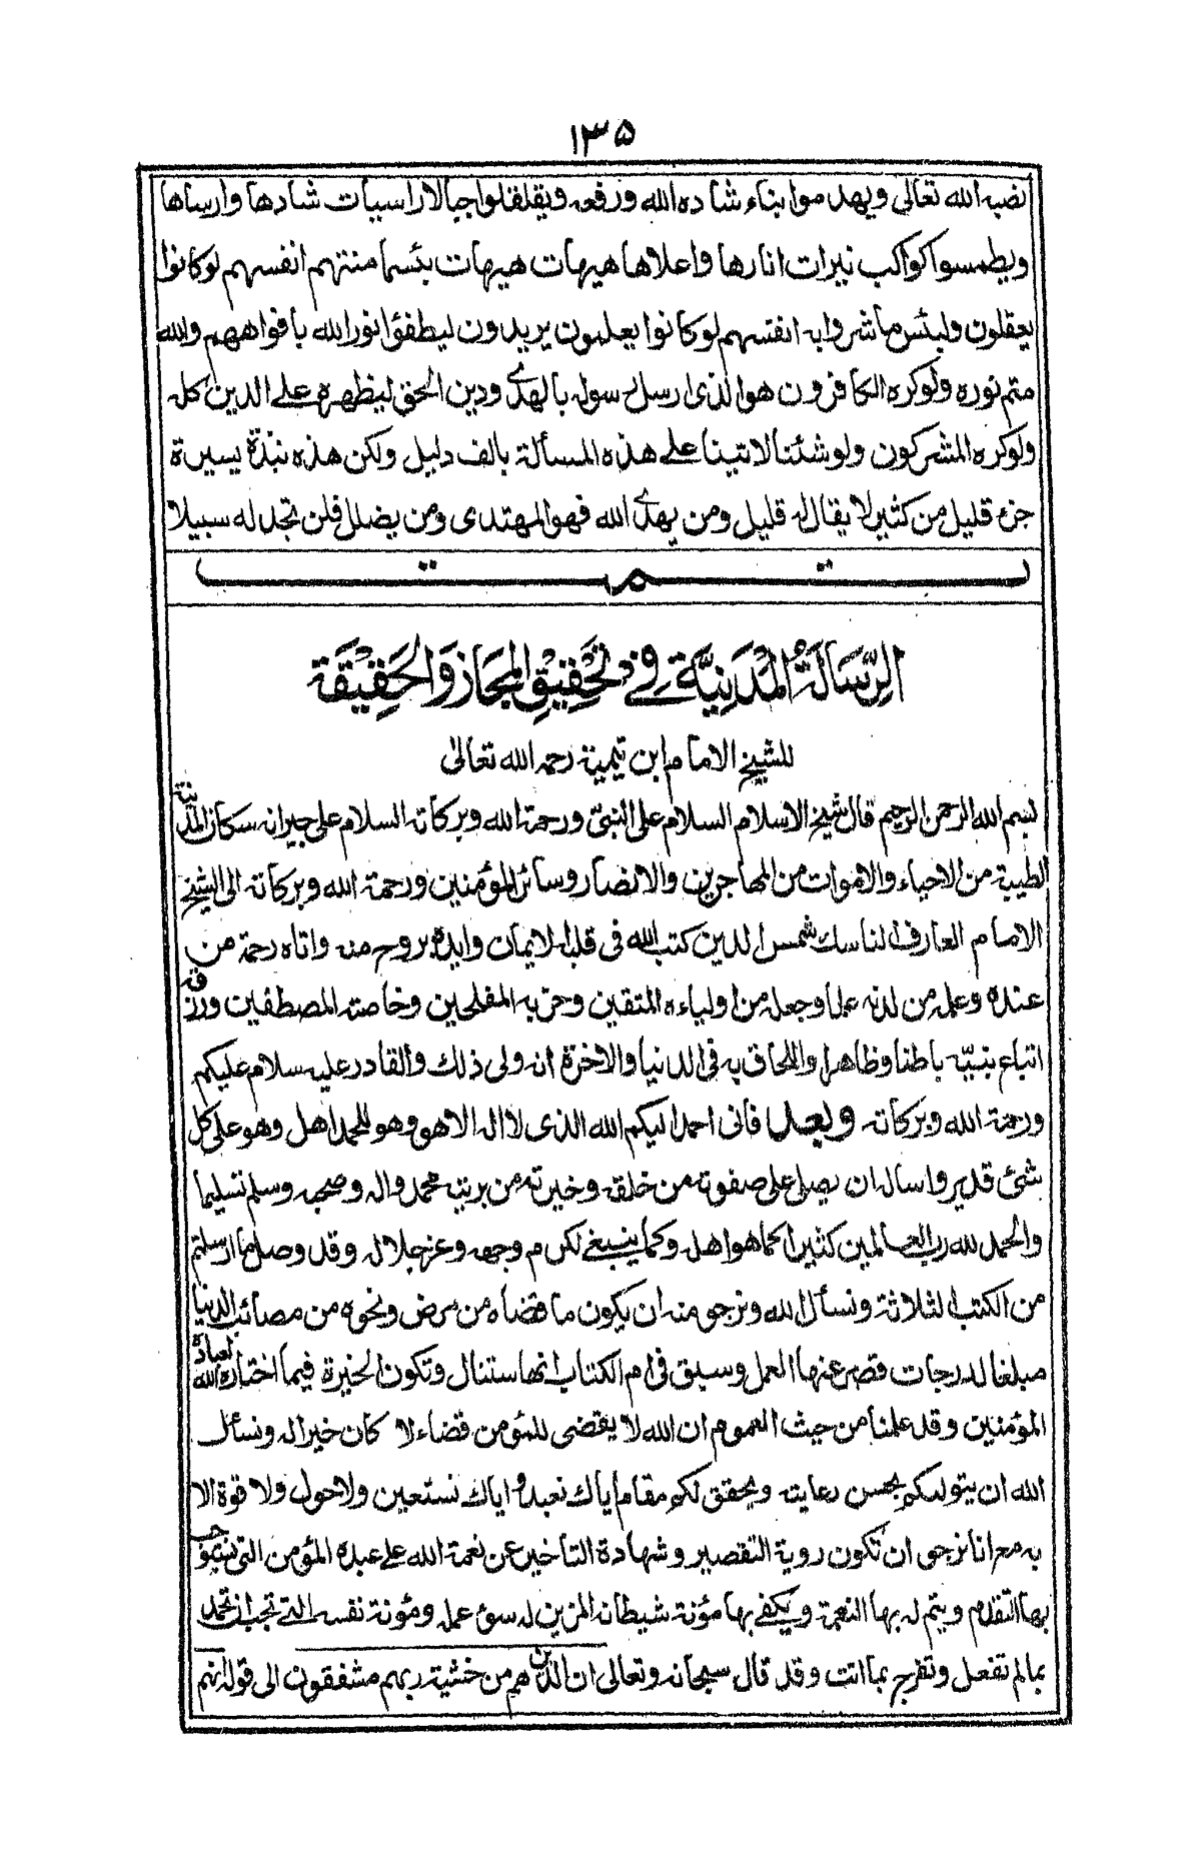 ١٣٥
نصبه الله تعالى ويهدموا بناء شاده الله ورفعه ويقلقلوا جبالا راسيات شادها وارساها
ويطمسوا كواكب نيرات انارها واعلاها هيهات هيهات بئسما منتهم انفسهم لو كانوا
يعقلون ولبئس ما شروا به انفسهم لو كانوا يعلمون يريدون ليطفؤا نور الله بافواههم والله
متم نوره ولو كره الكافرون هو الذى ارسل رسوله بالهدى ودين الحق ليظهره على الدين كله
ولو كره المشركون ولو شئنا لاتينا على هذه المسألة بالف دليل ولكن هذه نبذة يسيرة
جزء قليل من كثير لا يقال له قليل ومن يهدى الله فهو المهتدى ومن يضلل فلن تجد له سبيلا
تمت
الرِّسَالَةُ المَدَنِيَّة فِي تَحْقِيْقِ المَجَاز وَالحَقِيْقَة
للشيخ الامام ابن تيمية رحمه الله تعالى
بسم الله الرحمن الرحيم قال شيخ الاسلام السلام على النبيّ ورحمة الله وبركاته السلام على جيرانه سكان المدينة
الطيبة من الاحياء والاموات من المهاجرين والانصار وسائر المؤمنين ورحمة الله وبركاته الى الشيخ
الامام العارف الناسك شمس الدين كتب الله فى قلبه الايمان وايده بروح منه واتاه رحمة من
عنده وعلمه من لدنه علما وجعله من اولياءه المتقين وحزبه المفلحين وخاصته المصطفين ورزقه
اتباع نبيّه باطنا وظاهرا واللحاق به فى الدنيا والاخرة انه ولى ذلك والقادر عليه سلام عليكم
ورحمة الله وبركاته وبعد فانى احمد اليكم الله الذى لا اله الا هو وهو للحمد اهل وهو على كل
شئ قدير واساله ان يصلى على صفوته من خلقه وخيرته من بريته محمد واله وصحبه وسلم تسليما
والحمد لله رب العالمين كثيرا كما هو اهله وكما ينبغى لكرم وجهه وعز جلاله وقد وصل ما ارسلتم
من الكتب الثلاثة ونسأل الله ونرجو منه ان يكون ما قضاه من مرض ونحوه من مصائب الدنيا
مبلغا لدرجات قصر عنها العمل وسبق فى ام الكتاب انها ستنال وتكون الخيرة فيما اختاره الله لعباده
المؤمنين وقد علمنا من حيث العموم ان الله لا يقضى للمؤمن قضاء الا كان خيرا له ونسأل
الله ان يتولاكم بحسن رعايته ويحقق لكم مقام اياك نعبد واياك نستعين ولا حول ولا قوة الا
به مع انا نرجو ان تكون روية التقصير وشهادة التأخير عن نعمة الله على عبده المؤمن التى يستوجب
بها التقدم ويتم له بها النعمة ويكفى بها مؤنة شيطانه المزين له سوء عمله ومؤنة نفسه التى تحب ان تحمد
بما لم تفعل وتفرح بما اتت وقد قال سبحانه وتعالى ان الذين هم من خشية ربهم مشفقون الى قوله انهم